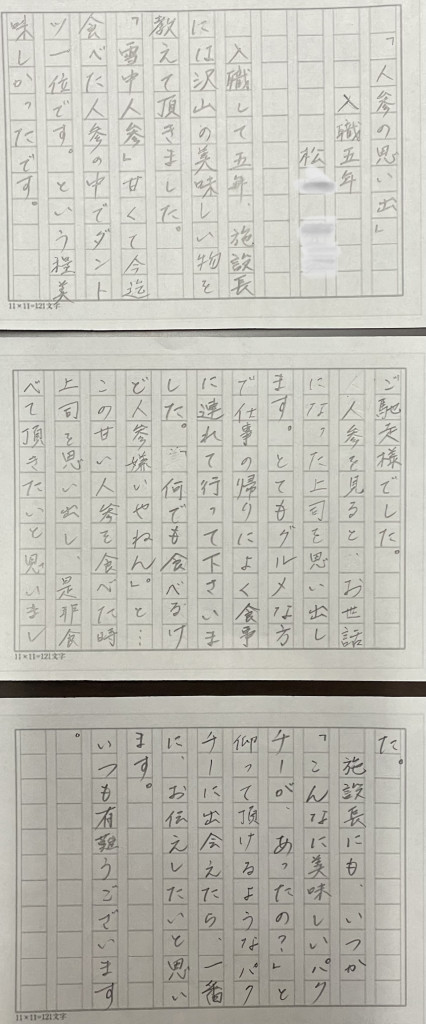 「人参の思い出」
入職五年
松
入職して五年、施設長
には沢山の美味しい物を
教えて頂きました。
「雪中人参」甘くて今迄
食べた人参の中でダント
ツ一位です。という程美
味しかったです。
11×11=121文字
ご馳走様でした。
人参を見ると、お世話
になった上司を思い出し
ます。とてもグルメな方
で仕事の帰りによく食事
に連れて行って下さいま
した。「何でも食べるけ
ど人参嫌いやねん」。と…
この甘い人参を食べた時
上司を思い出し、是非食
べて頂きたいと思いまし
11×11=121文字
た。
施設長にも、いつか
「こんなに美味しいパク
チーが、あったの？」と
仰って頂けるようなパク
チーに出会えたら、一番
に、お伝えしたいと思い
ます。
いつも有難うございます
。
11×11=121文字